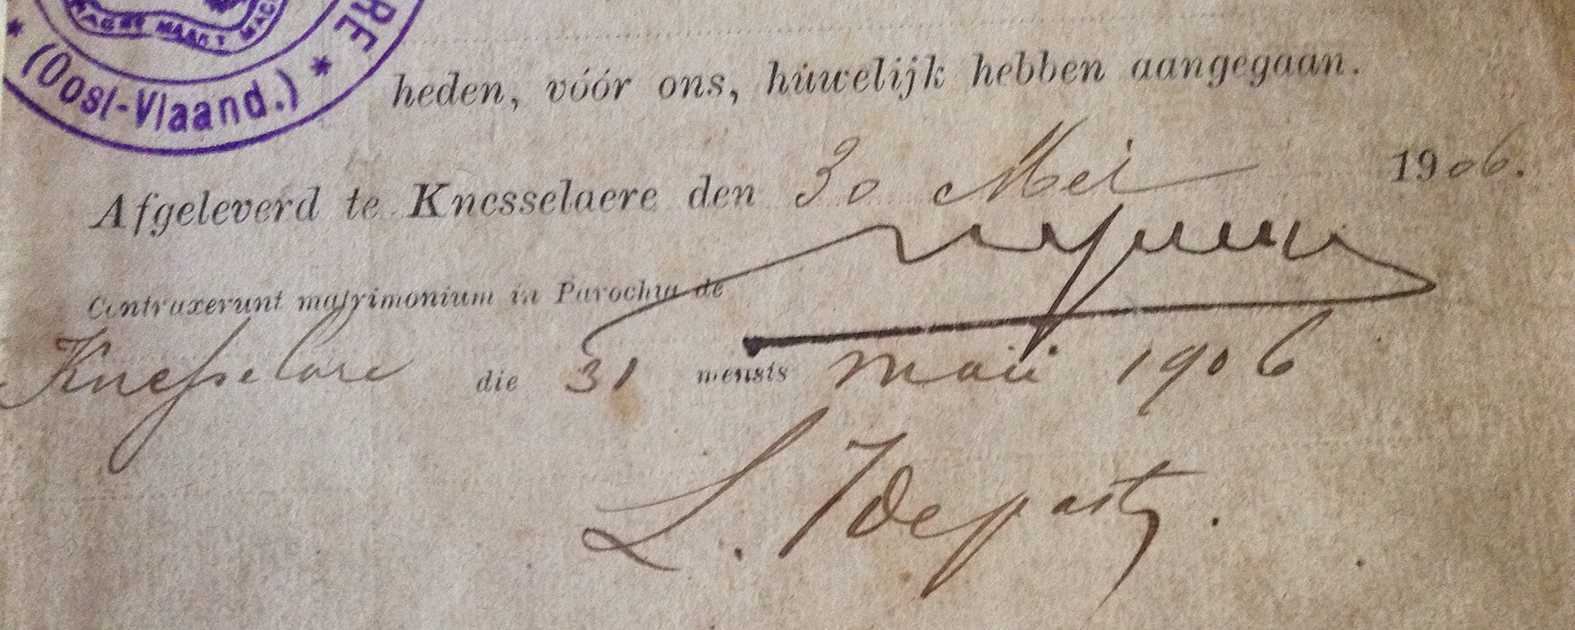 RE
MAAKT MAC
* (Oost-Vlaand.) *
heden, vóór ons, huwelijk hebben aangegaan.
Afgeleverd te Knesselaere den 30 Mei 1906.
Contraxerunt matrimonium in Parochia de
Knesselare die 31 mensis maii 1906
L.